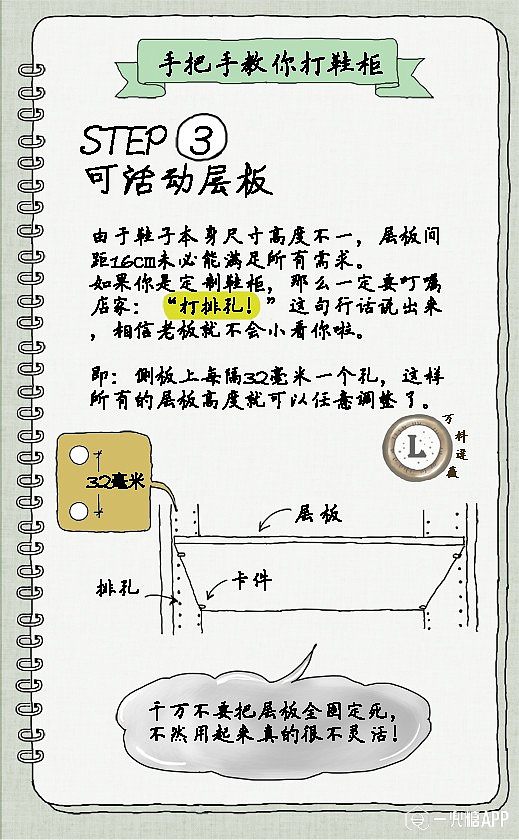 手把手教你打鞋柜
STEP 3
可活动层板
由于鞋子本身尺寸高度不一，层板间
距16cm未必能满足所有需求。
如果你是定制鞋柜，那么一定要叮嘱
店家：“打排孔！”这句行话说出来
，相信老板就不会小看你啦。
即：侧板上每隔32毫米一个孔，这样
所有的层板高度就可以任意调整了。
L
万料逞薇
32毫米
层板
排孔
卡件
千万不要把层板全固定死，
不然用起来真的很不灵活！
一兜糖APP